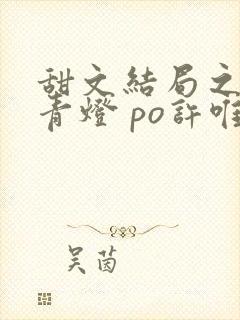 甜文結局之
青燈 po許唯
吴茵